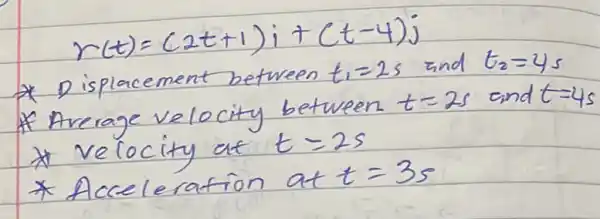 r(t) = (2t+1)i + (t-4)j
* Displacement between t₁=2s and t₂=4s
* Average velocity between t=2s and t=4s
* velocity at t=2s
* Acceleration at t=3s